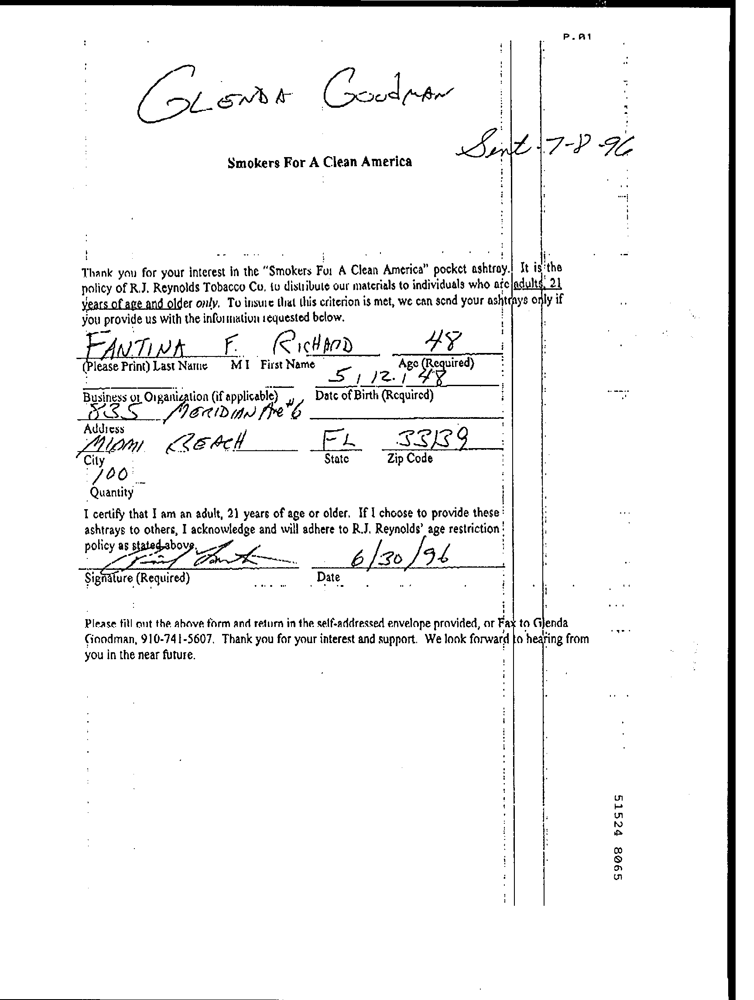 P.01
GLENDA GOODMAN
Sent 7-8-96
Smokers For A Clean America
Thank you for your interest in the "Smokers For A Clean America" pocket ashtray. It is the
policy of R.J. Reynolds Tobacco Co. to distribute our materials to individuals who are adults, 21
years of age and older only. To insure that this criterion is met, we can send your ashtrays only if
you provide us with the information requested below.
FANTINA F. RICHARD 48
(Please Print) Last Name M I First Name Age (Required)
5 / 12 / 48
Business or Organization (if applicable) Date of Birth (Required)
835 MERIDIAN Ave #6
Address
MIAMI BEACH FL 33139
City State Zip Code
100
Quantity
I certify that I am an adult, 21 years of age or older. If I choose to provide these
ashtrays to others, I acknowledge and will adhere to R.J. Reynolds' age restriction
policy as stated above.
6/30/96
Signature (Required) Date
Please fill out the above form and return in the self-addressed envelope provided, or Fax to Glenda
Goodman, 910-741-5607. Thank you for your interest and support. We look forward to hearing from
you in the near future.
51524 8065